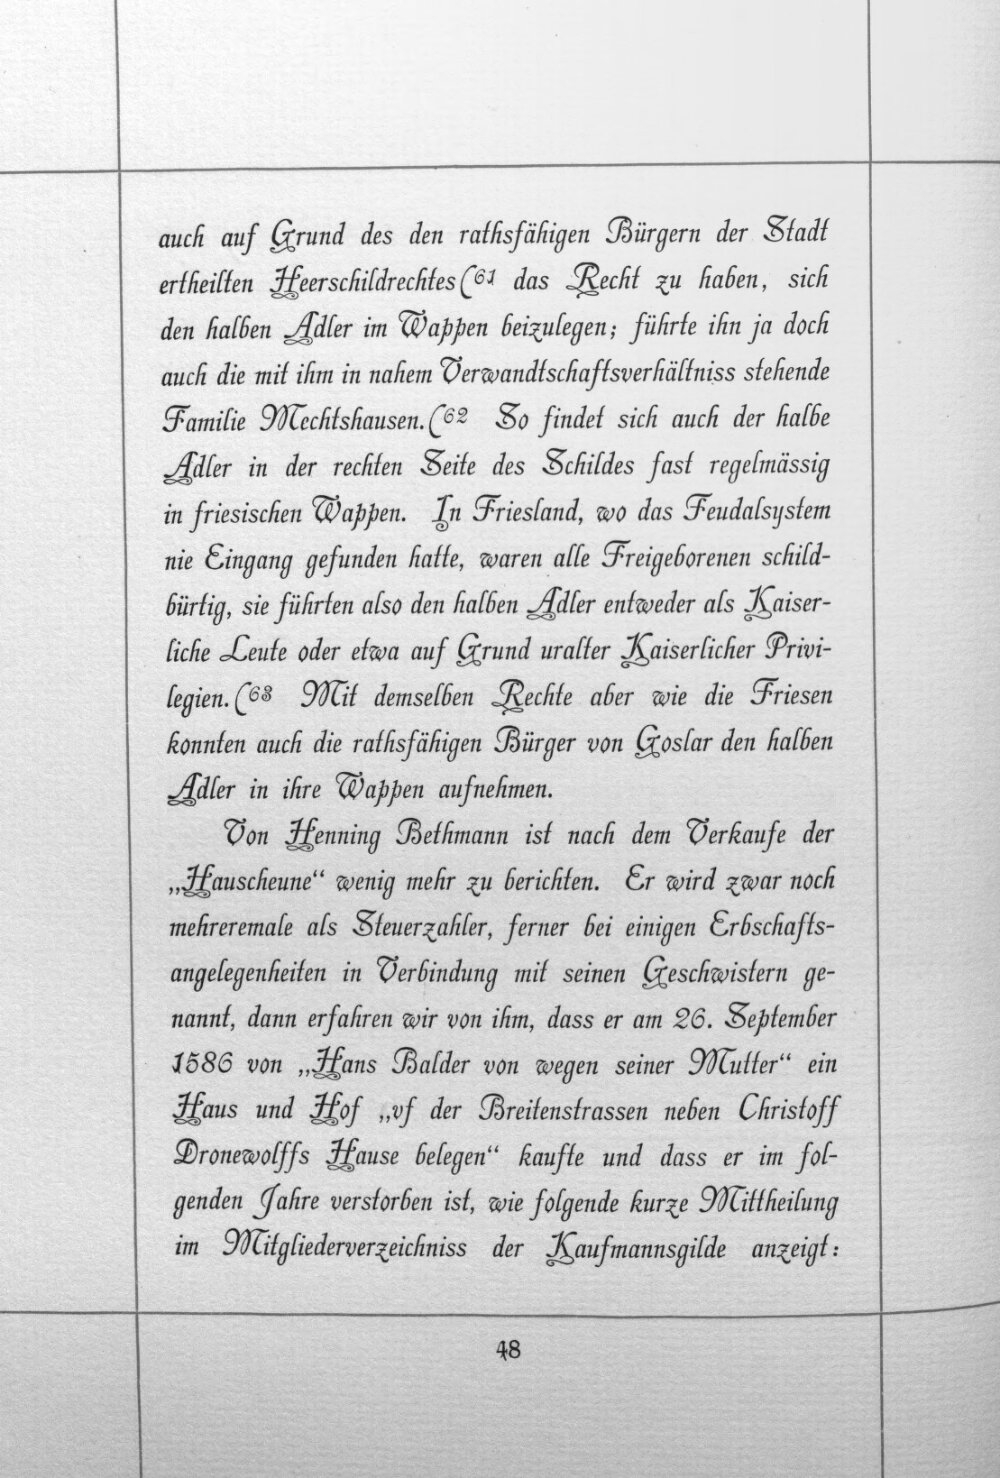 auch auf Grund des den rathsfähigen Bürgern der Stadt
ertheilten Heerschildrechtes(61 das Recht zu haben, sich
den halben Adler im Wappen beizulegen; führte ihn ja doch
auch die mit ihm in nahem Verwandtschaftsverhältniss stehende
Familie Mechtshausen.(62 So findet sich auch der halbe
Adler in der rechten Seite des Schildes fast regelmässig
in friesischen Wappen. In Friesland, wo das Feudalsystem
nie Eingang gefunden hatte, waren alle Freigeborenen schild-
bürtig, sie führten also den halben Adler entweder als Kaiser-
liche Leute oder etwa auf Grund uralter Kaiserlicher Privi-
legien.(63 Mit demselben Rechte aber wie die Friesen
konnten auch die rathsfähigen Bürger von Goslar den halben
Adler in ihre Wappen aufnehmen.
Von Henning Bethmann ist nach dem Verkaufe der
„Hauscheune“ wenig mehr zu berichten. Er wird zwar noch
mehreremale als Steuerzahler, ferner bei einigen Erbschafts-
angelegenheiten in Verbindung mit seinen Geschwistern ge-
nannt, dann erfahren wir von ihm, dass er am 26. September
1586 von „Hans Balder von wegen seiner Mutter“ ein
Haus und Hof „vf der Breitenstrassen neben Christoff
Dronewolffs Hause belegen“ kaufte und dass er im fol-
genden Jahre verstorben ist, wie folgende kurze Mittheilung
im Mitgliederverzeichniss der Kaufmannsgilde anzeigt:
48